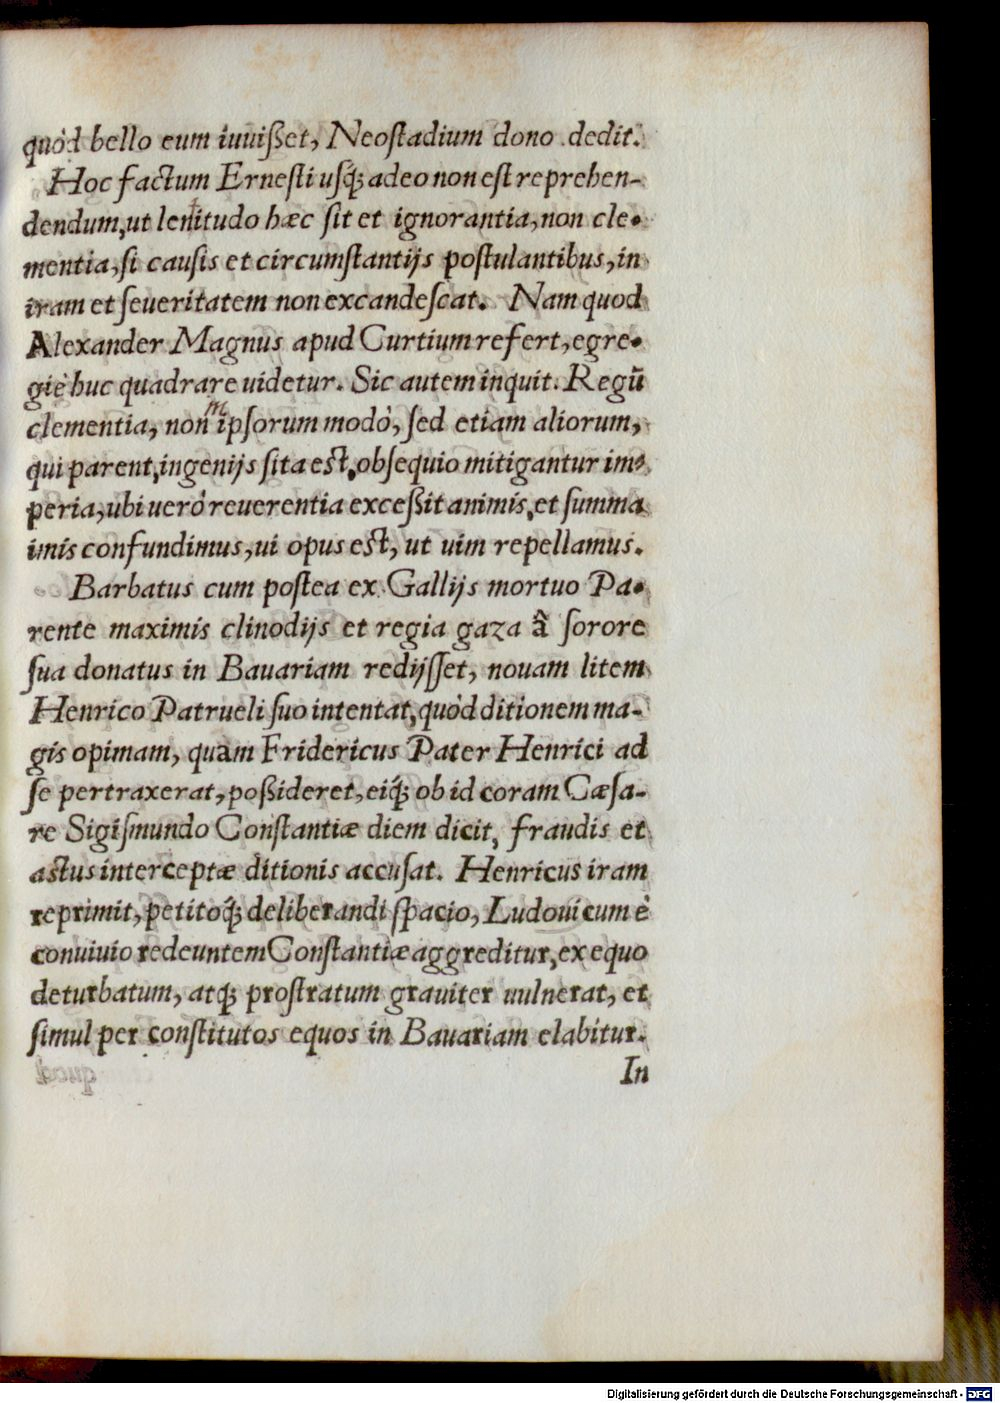 quòd bello eum iuuißet, Neoſtadium dono dedit.
Hoc factum Erneſti uſq́; adeo non eſt reprehen-
dendum, ut lenitudo hæc ſit et ignorantia, non cle-
mentia, ſi cauſis et circumſtantijs poſtulantibus, in
iram et ſeueritatem non excandeſcat. Nam quod
Alexander Magnus apud Curtium refert, egre-
giè huc quadrare uidetur. Sic autem inquit. Regũ
clementia, non in ipſorum modò, ſed etiam aliorum,
qui parent, ingenijs ſita eſt, obſequio mitigantur im-
peria, ubi uerò reuerentia exceßit animis, et ſumma
imis confundimus, ui opus eſt, ut uim repellamus.
Barbatus cum poſtea ex Gallijs mortuo Pa-
rente maximis clinodijs et regia gaza â ſorore
ſua donatus in Bauariam redijſſet, nouam litem
Henrico Patrueli ſuo intentat, quòd ditionem ma-
gis opimam, quàm Fridericus Pater Henrici ad
ſe pertraxerat, poßideret, eiq́; ob id coram Cæſa-
re Sigiſmundo Conſtantiæ diem dicit, fraudis et
aſtus interceptæ ditionis accuſat. Henricus iram
reprimit, petitoq́; deliberandi ſpacio, Ludouicum è
conuiuio redeuntem Conſtantiæ aggreditur, ex equo
deturbatum, atq́; proſtratum grauiter uulnerat, et
ſimul per conſtitutos equos in Bauariam elabitur.
In
Digitalisierung gefördert durch die Deutsche Forschungsgemeinschaft - DFG